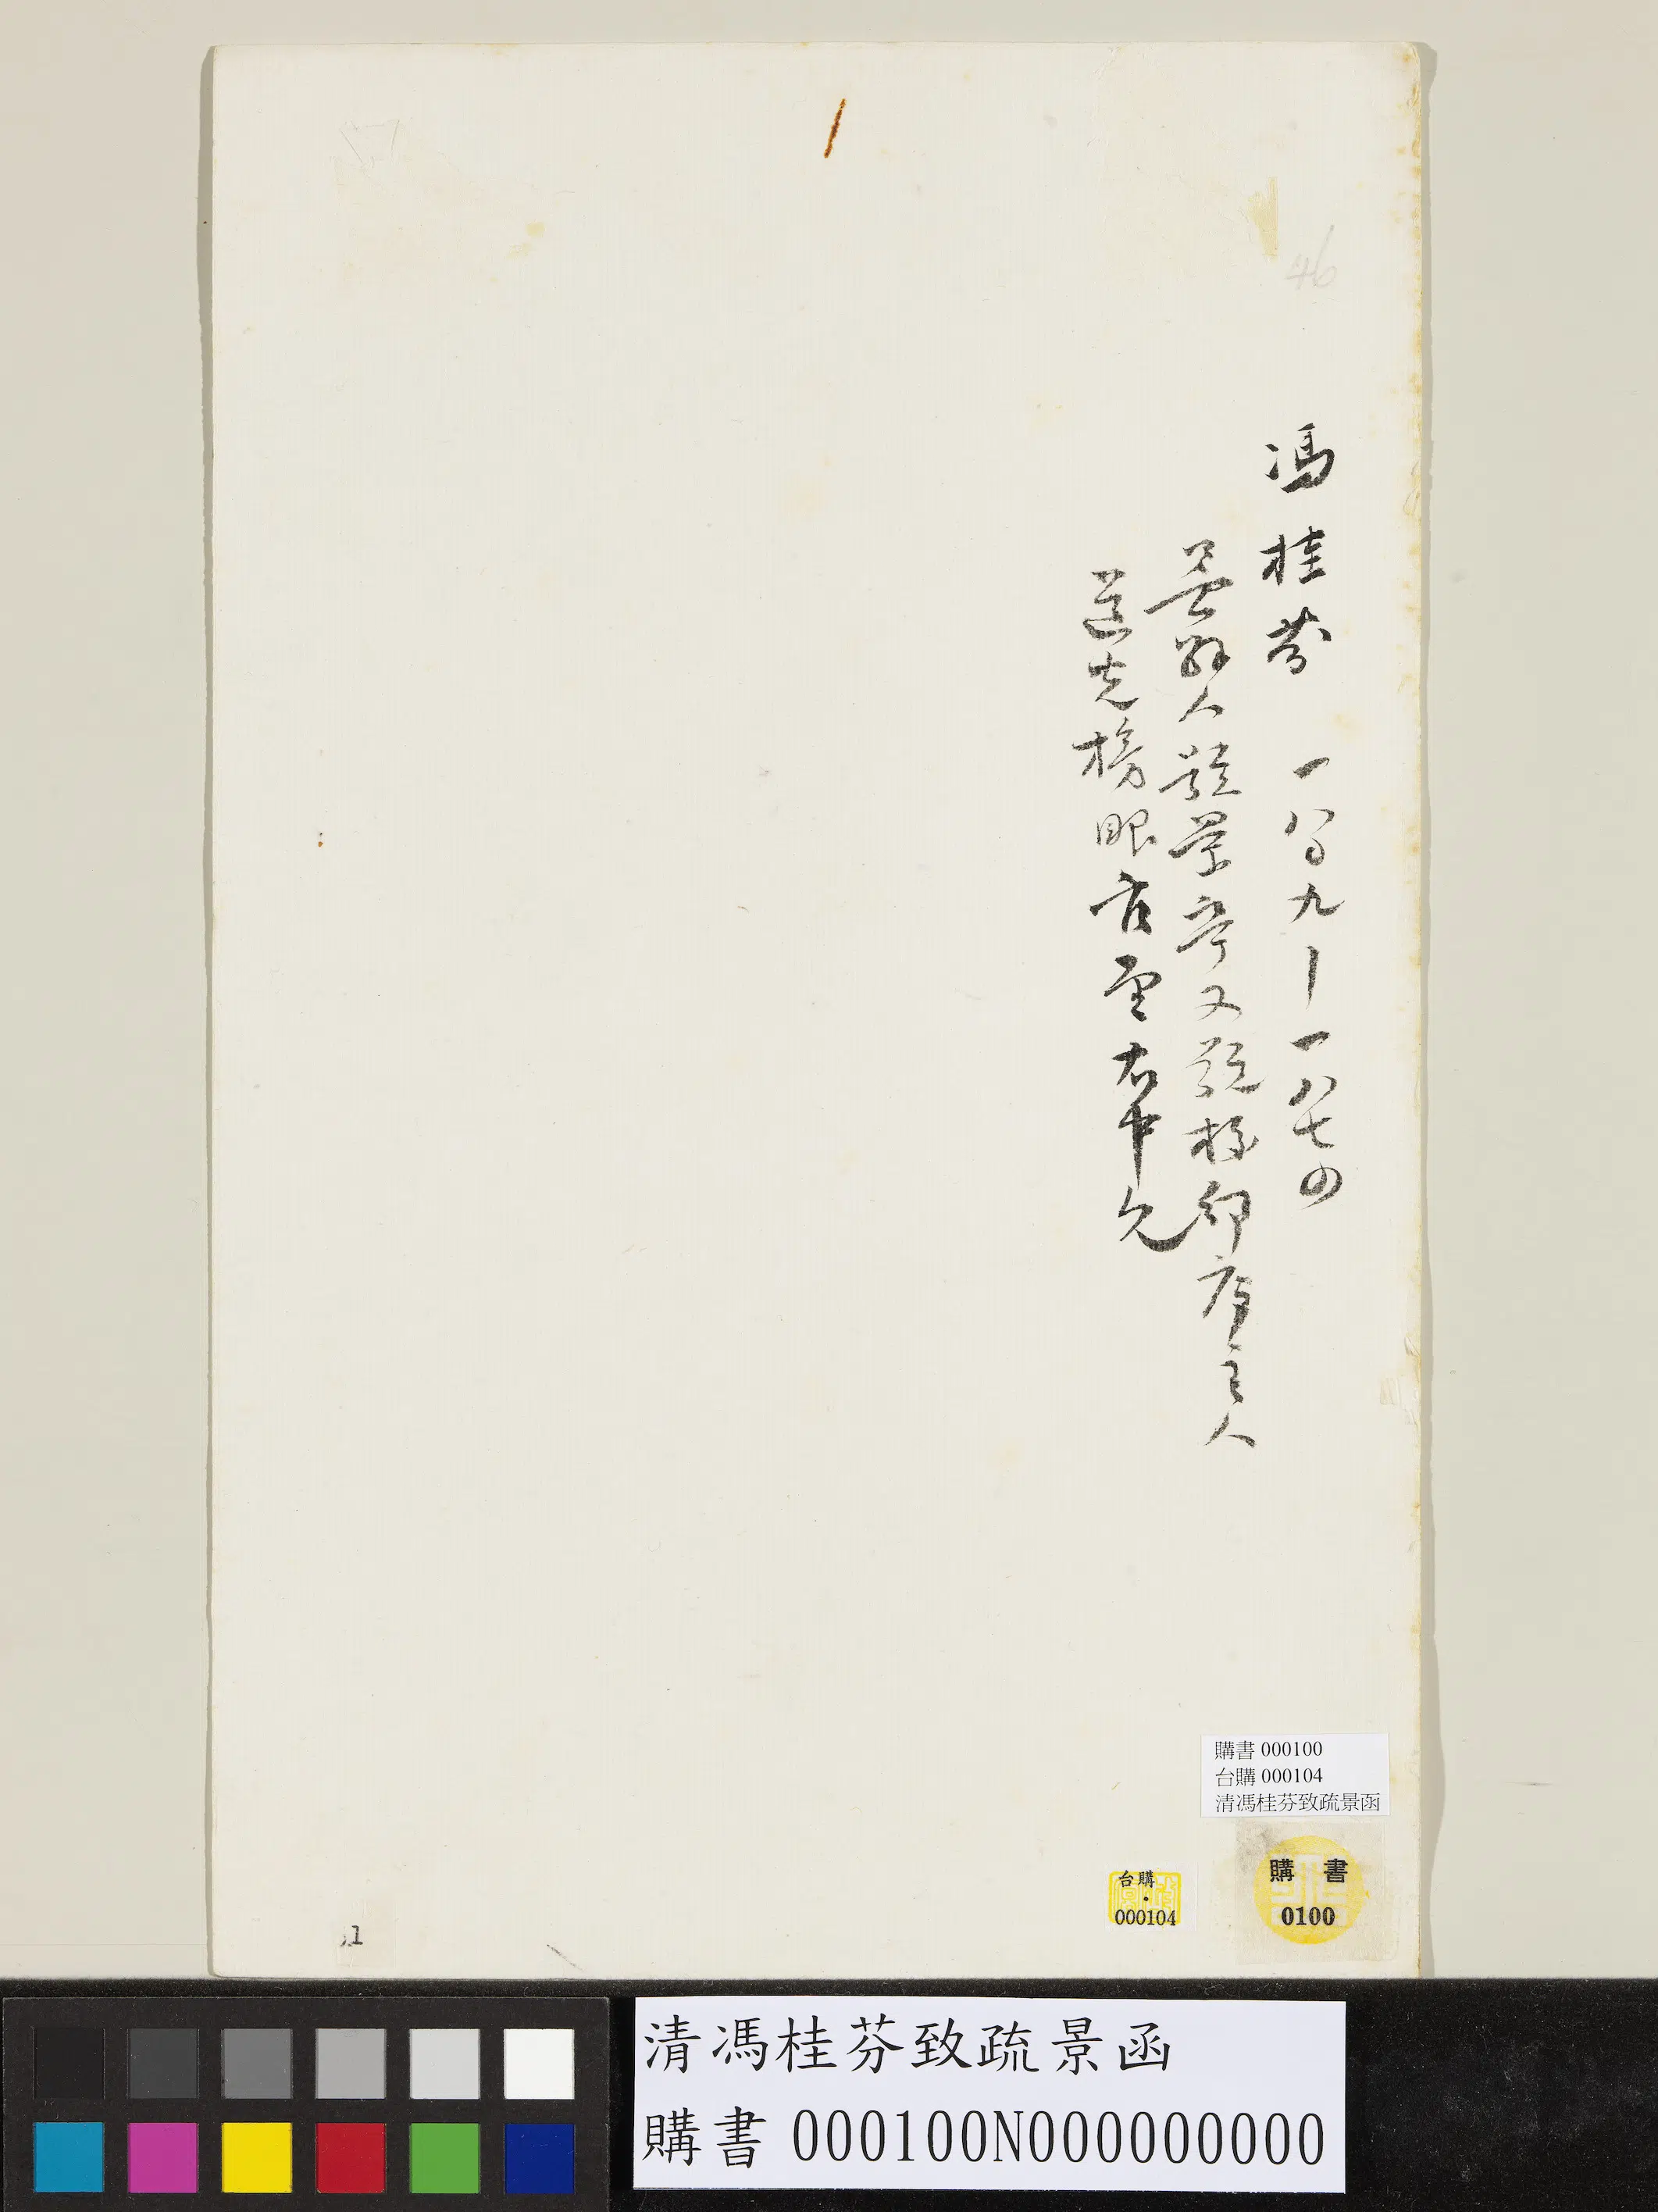 46
馮桂芬 一八〇九—一八七四
吳縣人號景亭又號校邠廬主人
道光榜眼官至右中允
購書 000100
台購 000104
清馮桂芬致疏景函
購書
0100
台購
000104
1
清馮桂芬致疏景函
購書 000100N000000000